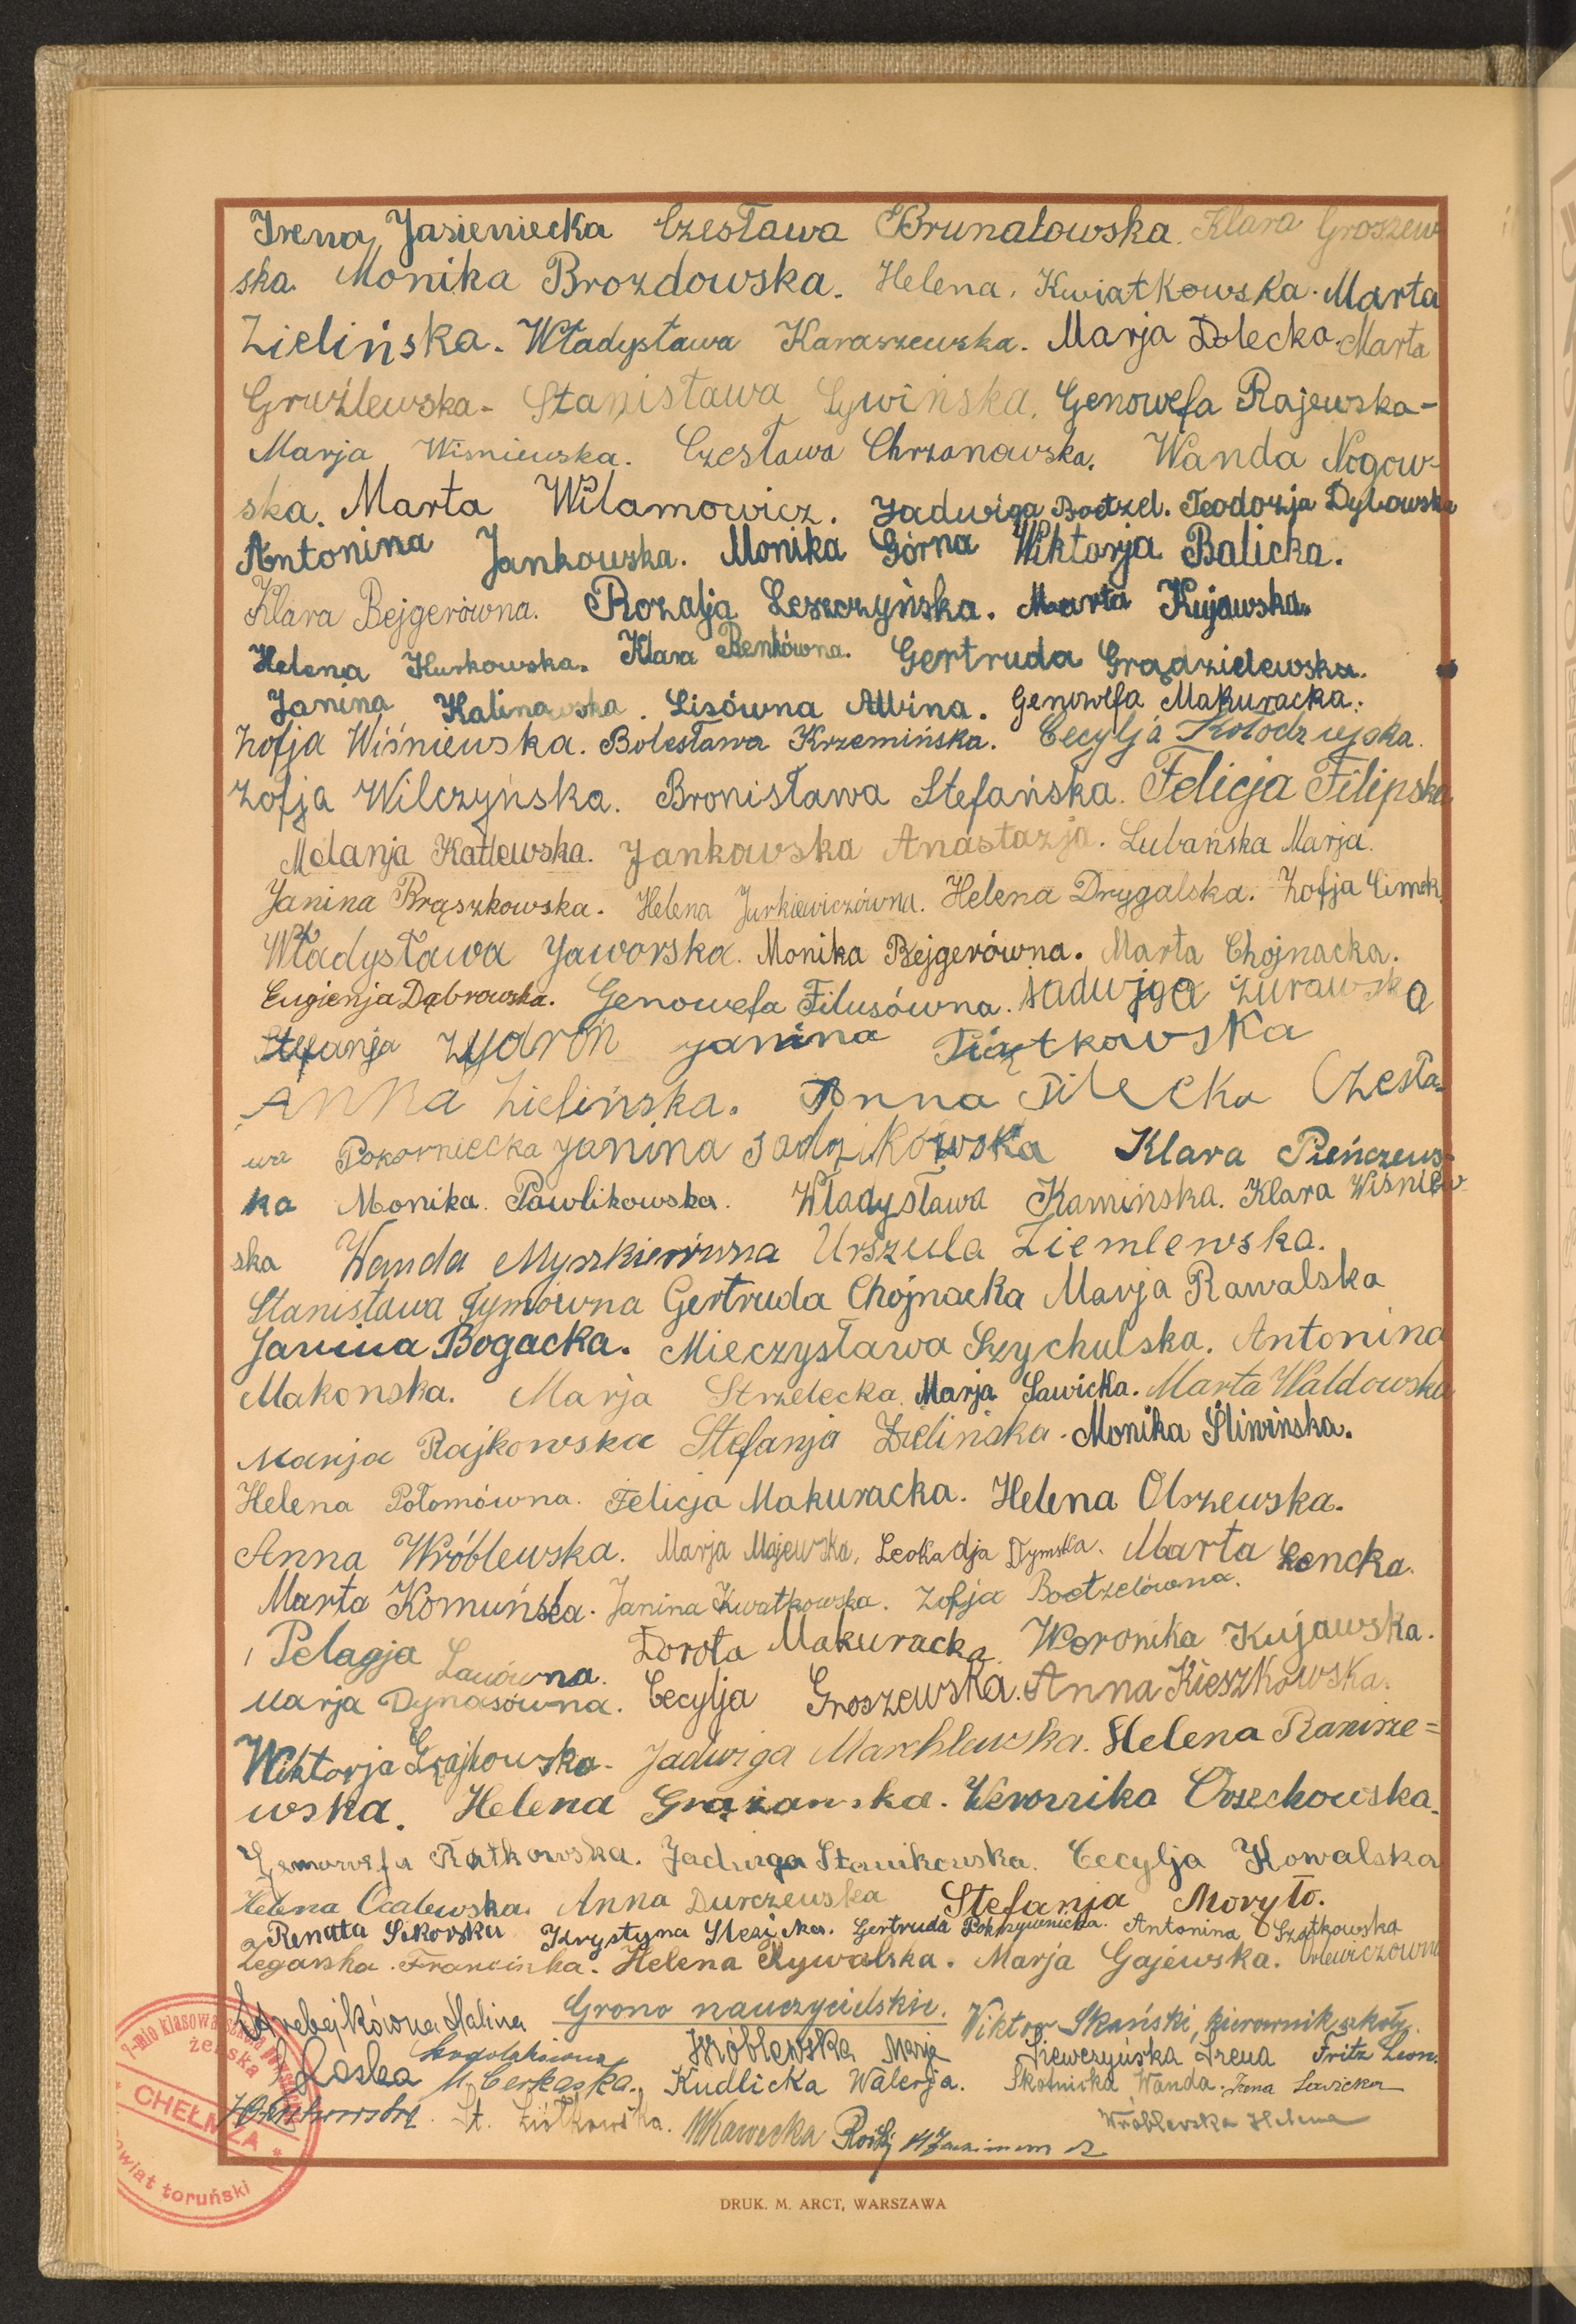 Irena Jasieniecka Czesława Brunatowska. Klara Groszew
ska. Monika Brozdowska. Helena Kwiatkowska. Marta
Zielińska. Władysława Karaszewska. Marja Dolecka. Marta
Gruźlewska. Stanisława Cywińska, Genowefa Rajewska-
Marja Wiśniewska. Czesława Chrzanowska. Wanda Nogow-
ska. Marta Wilamowicz. Jadwiga Boetzel. Teodozja Dybowska
Antonina Jankowska. Monika Górna Wiktorja Balicka.
Klara Bejgerówna. Rozalja Leszczyńska. Marta Kujawska.
Helena Kurkowska. Klara Benkówna. Gertruda Grądzielewska.
Janina Kalinowska. Lisówna Albina. Genowefa Makuracka.
Zofja Wiśniewska. Bolesława Krzemińska. Cecylja Kołodziejska.
Zofja Wilczyńska. Bronisława Stefańska. Felicja Filipska
Melanja Katlewska. Jankowska Anastazja. Lubańska Marja.
Janina Brąszkowska. Helena Jurkiewiczówna. Helena Drygalska. Zofja Cimek.
Władysława Jaworska. Monika Bejgerówna. Marta Chojnacka.
Eugienja Dąbrowska. Genowefa Filusówna. Jadwjga Żurawska
Stefanja Zydroń Janina Piątkowska
Anna Zielińska. Anna Pilecka Czesła-
wa Pokorniecka Janina Sadzikowska Klara Pieńczews-
ka Monika Pawlikowska. Władysława Kamińska. Klara Wiśniew-
ska Wanda Myszkierówna Urszula Ziemlewska.
Stanisława Tymówna Gertruda Chojnacka Marja Rawalska
Janina Bogacka. Mieczysława Szychulska. Antonina
Makonska. Marja Strzelecka. Marja Sawicka. Marta Waldowska
Marja Rajkowska Stefanja Zielińska. Monika Śliwińska.
Helena Potomówna. Felicja Makuracka. Helena Olszewska.
Anna Wróblewska. Marja Majewska, Leokadja Dymska. Marta Lencka.
Marta Komuńska. Janina Kwatkowska. Zofja Boetzelówna.
Pelagja Lauówna. Dorota Makuracka. Weronika Kujawska.
Marja Dynasówna. Cecylja Groszewska. Anna Kieszkowska.
Wiktorja Grajkowska. Jadwiga Marchlewska. Helena Ramsze=
wska. Helena Grążawska. Weronika Orzechowska.
Genowefa Ratkowska. Jadwiga Stanikowska. Cecylja Kowalska
Helena Ocalewska. Anna Durczewska Stefanja Moryto.
Renata Sikorska Krystyna Gertruda Pokrzywnicka. Antonina Szatkowska
Żegarska Franciszka. Helena Rywalska. Marja Gajewska. Orlewiczówna
Halina Grono nauczycielskie. Wiktor Skański, kierownik szkoły.
Wróblewska Marja Siewczyńska Irena Fritz Leon.
Laska M. Cerkaska. Kudlicka Walerja. Skotnicka Wanda. Irena Sawicka
St. Ziółkowska. Wróblewska Helena
żeńska
CHEŁMŻA
powiat toruński
DRUK. M. ARCT, WARSZAWA